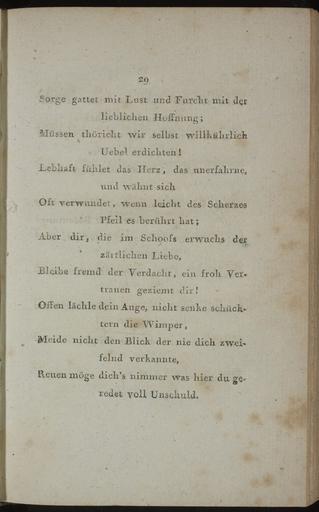 29
Sorge gattet mit Lust und Furcht mit der
lieblichen Hoffnung;
Müssen thöricht wir selbst willkührlich
Uebel erdichten!
Lebhaft fühlet das Herz, das unerfahrne,
und wähnt sich
Oft verwundet, wenn leicht des Scherzes
Pfeil es berührt hat;
Aber dir, die im Schoofs erwuchs der
zärtlichen Liebe,
Bleibe fremd der Verdacht, ein froh Ver-
trauen geziemt dir!
Offen lächle dein Auge, nicht senke schüch-
tern die Wimper,
Meide nicht den Blick der nie dich zwei-
felnd verkannte,
Reuen möge dich's nimmer was hier du ge-
redet voll Unschuld.